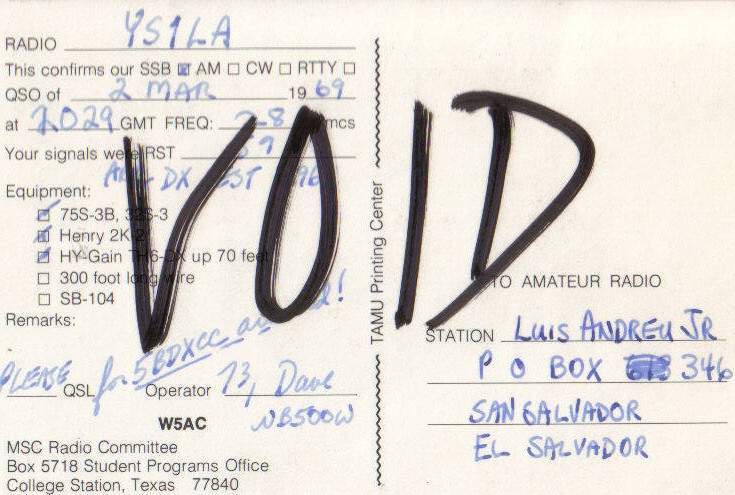 RADIO YS1LA
This confirms our SSB ☒ AM ☐ CW ☐ RTTY ☐
QSO of 2 MAR 1969
at 2029 GMT FREQ: 28 mcs
Your signals were RST 59
DX
Equipment:
75S-3B, 32S-3
Henry 2K-2
HY-Gain TH6-DX up 70 feet
☐ 300 foot long wire
☐ SB-104
Remarks:
for 5BDXCC
PLEASE QSL Operator 73, Dave
W5AC
MSC Radio Committee
Box 5718 Student Programs Office
College Station, Texas 77840
VOID
TAMU Printing Center
TO AMATEUR RADIO
STATION LUIS ANDREU JR
P O BOX 346
SAN SALVADOR
EL SALVADOR